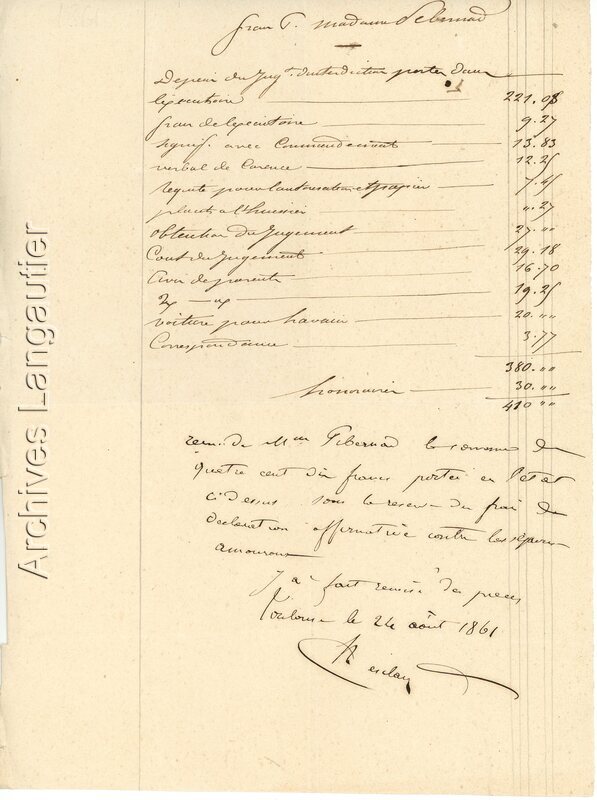 frais P. Madame Pebernad
Depens du Jugt. d'interdiction portés dans
l'executoire 221.08
frais de l'executoire 9.27
signif. avec Commandement 13.83
verbal de Carence 12.25
requete pour l'autorisation et papier 7.45
placets a l'huissier ".27
obtention du Jugement 27."
Cout du Jugement 29.18
Avis de parents 16.70
19.25
voiture pour 20.""
Correspondance 3.77
380.""
honoraires 30.""
410 ""
reçu de Mme Pebernad la somme de
quatre cent dix francs portée en l'état
ci dessus sous la reserve du frais de
declaration affirmative contre les
amouroux
J'ai fait remise des pieces
Toulouse le 24 août 1861
Archives Langautier